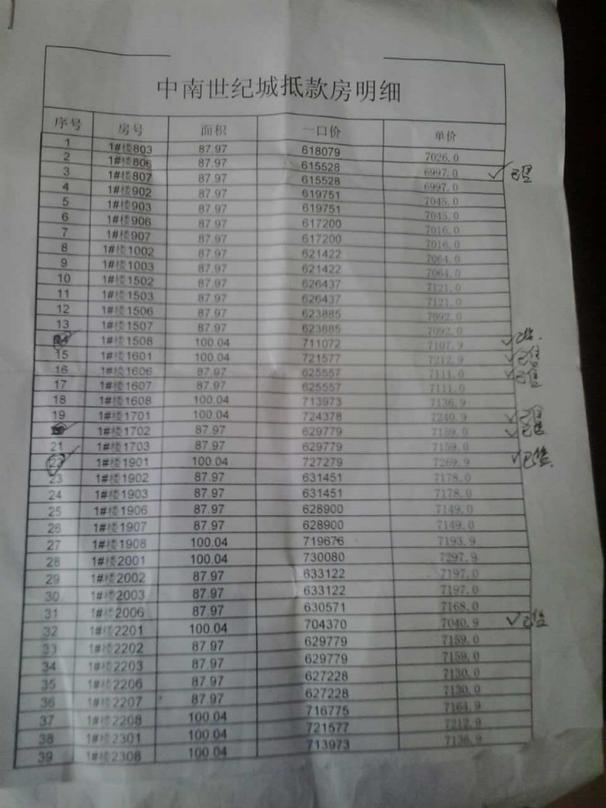 中南世纪城抵款房明细
序号 房号 面积 一口价 单价
1 1#楼803 87.97 618079 7026.0
2 1#楼806 87.97 615528 6997.0
3 1#楼807 87.97 615528 6997.0 ✓已售
4 1#楼902 87.97 619751 7045.0
5 1#楼903 87.97 619751 7045.0
6 1#楼906 87.97 617200 7016.0
7 1#楼907 87.97 617200 7016.0
8 1#楼1002 87.97 621422 7064.0
9 1#楼1003 87.97 621422 7064.0
10 1#楼1502 87.97 626437 7121.0
11 1#楼1503 87.97 626437 7121.0
12 1#楼1506 87.97 623885 7092.0
13 1#楼1507 87.97 623885 7092.0
1#楼1508 100.04 711072 7107.9 ✓已售
15 1#楼1601 100.04 721577 7212.9 ✓已售
16 1#楼1606 87.97 625557 7111.0 ✓已售
17 1#楼1607 87.97 625557 7111.0
18 1#楼1608 100.04 713973 7136.9
19 1#楼1701 100.04 724378 7240.9 ✓已售
1#楼1702 87.97 629779 7159.0 ✓已售
21 1#楼1703 87.97 629779 7159.0
22 1#楼1901 100.04 727279 7269.9 ✓已售
23 1#楼1902 87.97 631451 7178.0
24 1#楼1903 87.97 631451 7178.0
25 1#楼1906 87.97 628900 7149.0
26 1#楼1907 87.97 628900 7149.0
27 1#楼1908 100.04 719676 7193.9
28 1#楼2001 100.04 730080 7297.9
29 1#楼2002 87.97 633122 7197.0
30 1#楼2003 87.97 633122 7197.0
31 1#楼2006 87.97 630571 7168.0
32 1#楼2201 100.04 704370 7040.9 ✓已售
33 1#楼2202 87.97 629779 7159.0
34 1#楼2203 87.97 629779 7159.0
35 1#楼2206 87.97 627228 7130.0
36 1#楼2207 87.97 627228 7130.0
37 1#楼2208 100.04 716775 7164.9
38 1#楼2301 100.04 721577 7212.9
39 1#楼2308 100.04 713973 7136.9